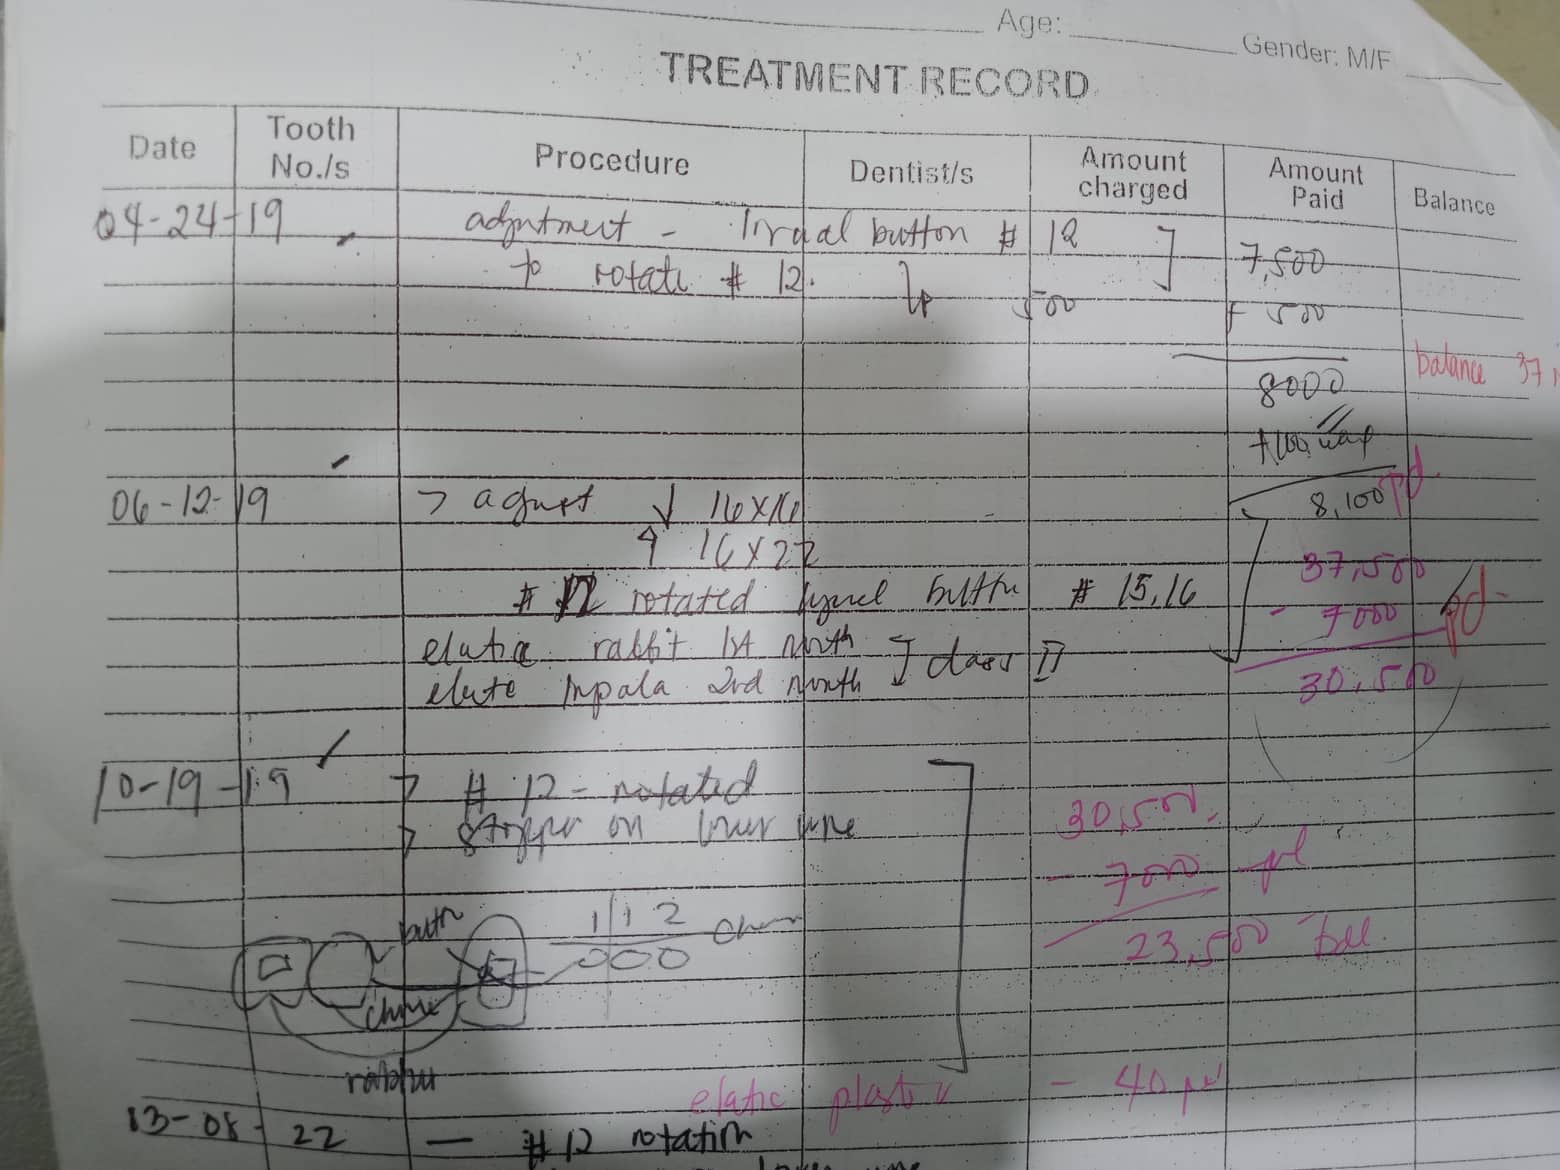 Age:
Gender: M/F
TREATMENT RECORD
Date Tooth No./s Procedure Dentist/s Amount charged Amount Paid Balance
04-24-19 adjutment - button # 12 7,500
to rotate # 12. 500 + 500
balance 37
8000
+100 wax
06-12-19 > adjust ↓ 16x16 8,100 pd.
↑ 16x22
37,500
# 12 rotated button # 15,16
- 7000 pd-
elatic rabbit 1st month ] class II
elate Impala 2nd month 30,500
10-19-19 > # 12 - rotated
30,500.
> stopper on lower
- 7000 pd
1|12
butn
000
23,500 bal.
chine
elatic plastic - 40 pd
13-08-22 — # 12 rotation